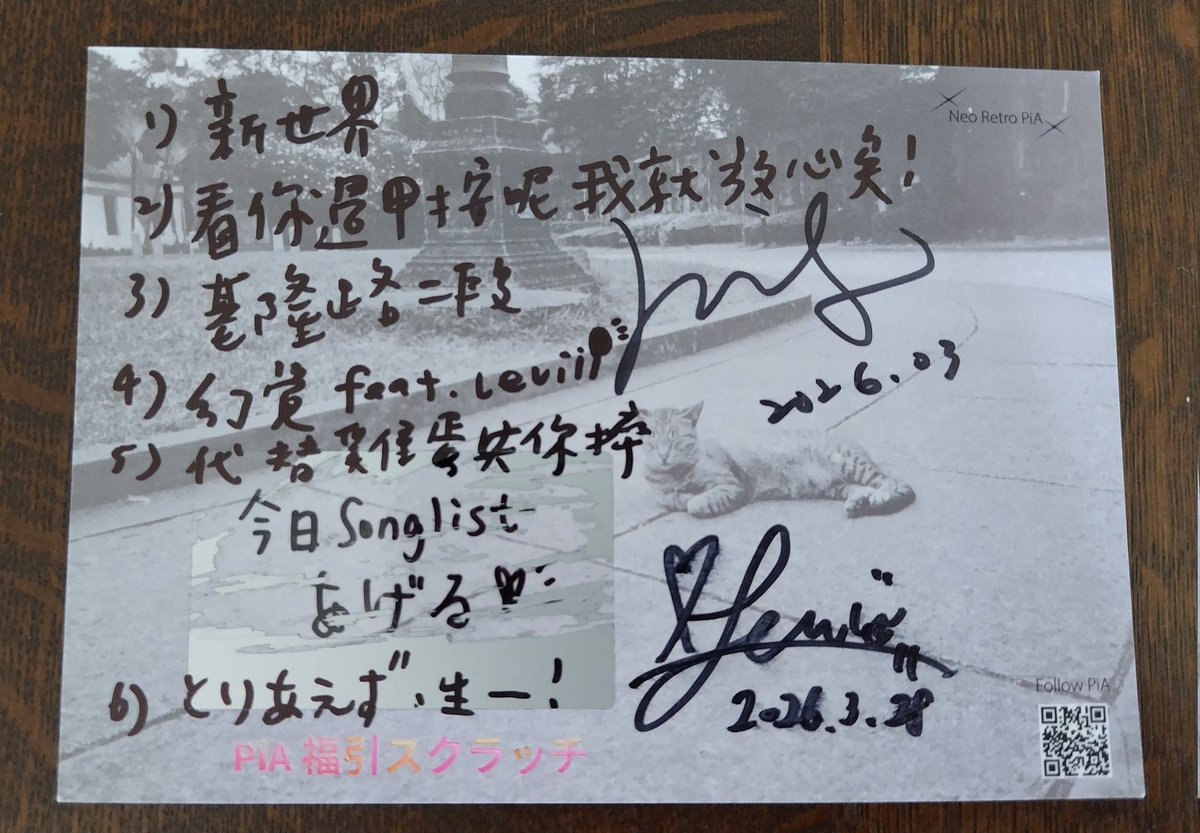 Neo Retro PiA
1) 新世界
2) 看你過甲按呢我就放心矣!
3) 基隆路二段
4) 幻覺 feat. Leviii
5) 代替雞蛋共你捽
今日 Songlist
あげる
6) とりあえず、生一!
2026.03
2026.3.28
Follow PiA
PiA 福引スクラッチ